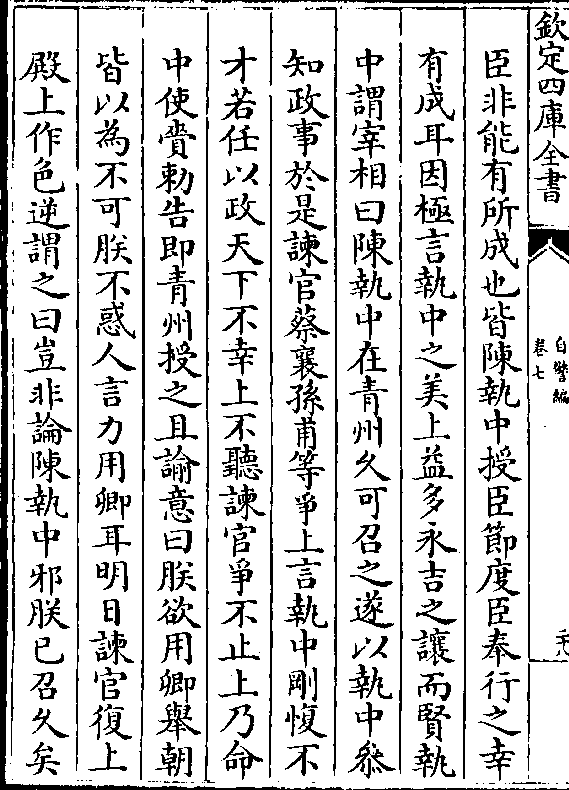 欽定四庫全書
自警編
卷七
二十八
臣非能有所成也皆陳執中授臣節度臣奉行之幸
有成耳因極言執中之美上益多永吉之讓而賢執
中謂宰相曰陳執中在青州久可召之遂以執中叅
知政事於是諫官蔡襄孫甫等爭上言執中剛愎不
才若任以政天下不幸上不聽諫官爭不止上乃命
中使賫勅告即青州授之且諭意曰朕欲用卿舉朝
皆以為不可朕不惑人言力用卿耳明日諫官復上
殿上作色逆謂之曰豈非論陳執中邪朕已召久矣